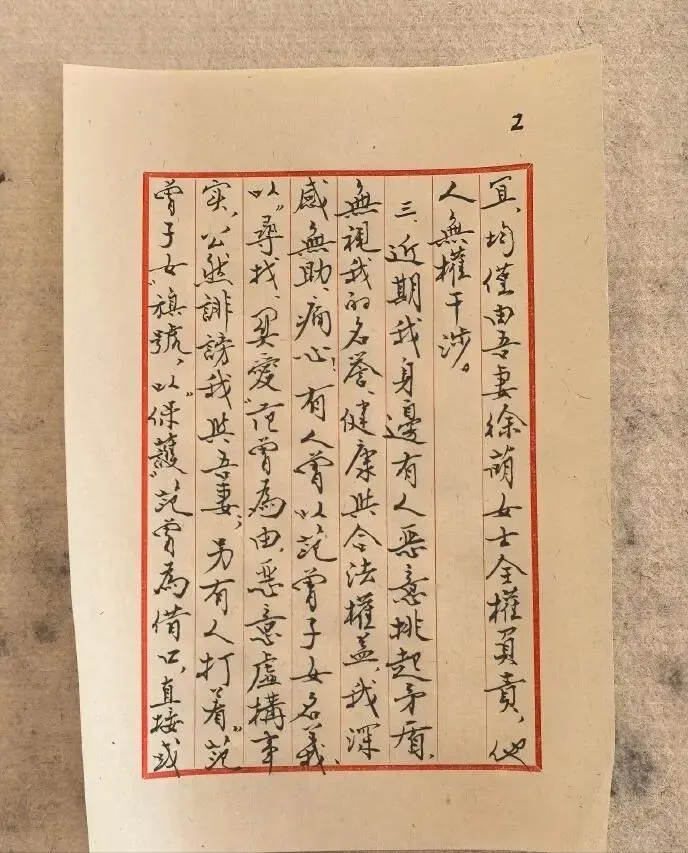 2
宜，均僅由吾妻徐萌女士全權負責，他
人無權干涉。
三、近期我身邊有人惡意挑起矛盾，
無視我的名譽、健康與合法權益，我深
感無助、痛心，有人曾以范曾子女名義，
以“尋找、關愛”范曾為由，惡意虛構事
實，公然誹謗我與吾妻，另有人打着“范
曾子女”旗號，以“保護”范曾為借口，直接或